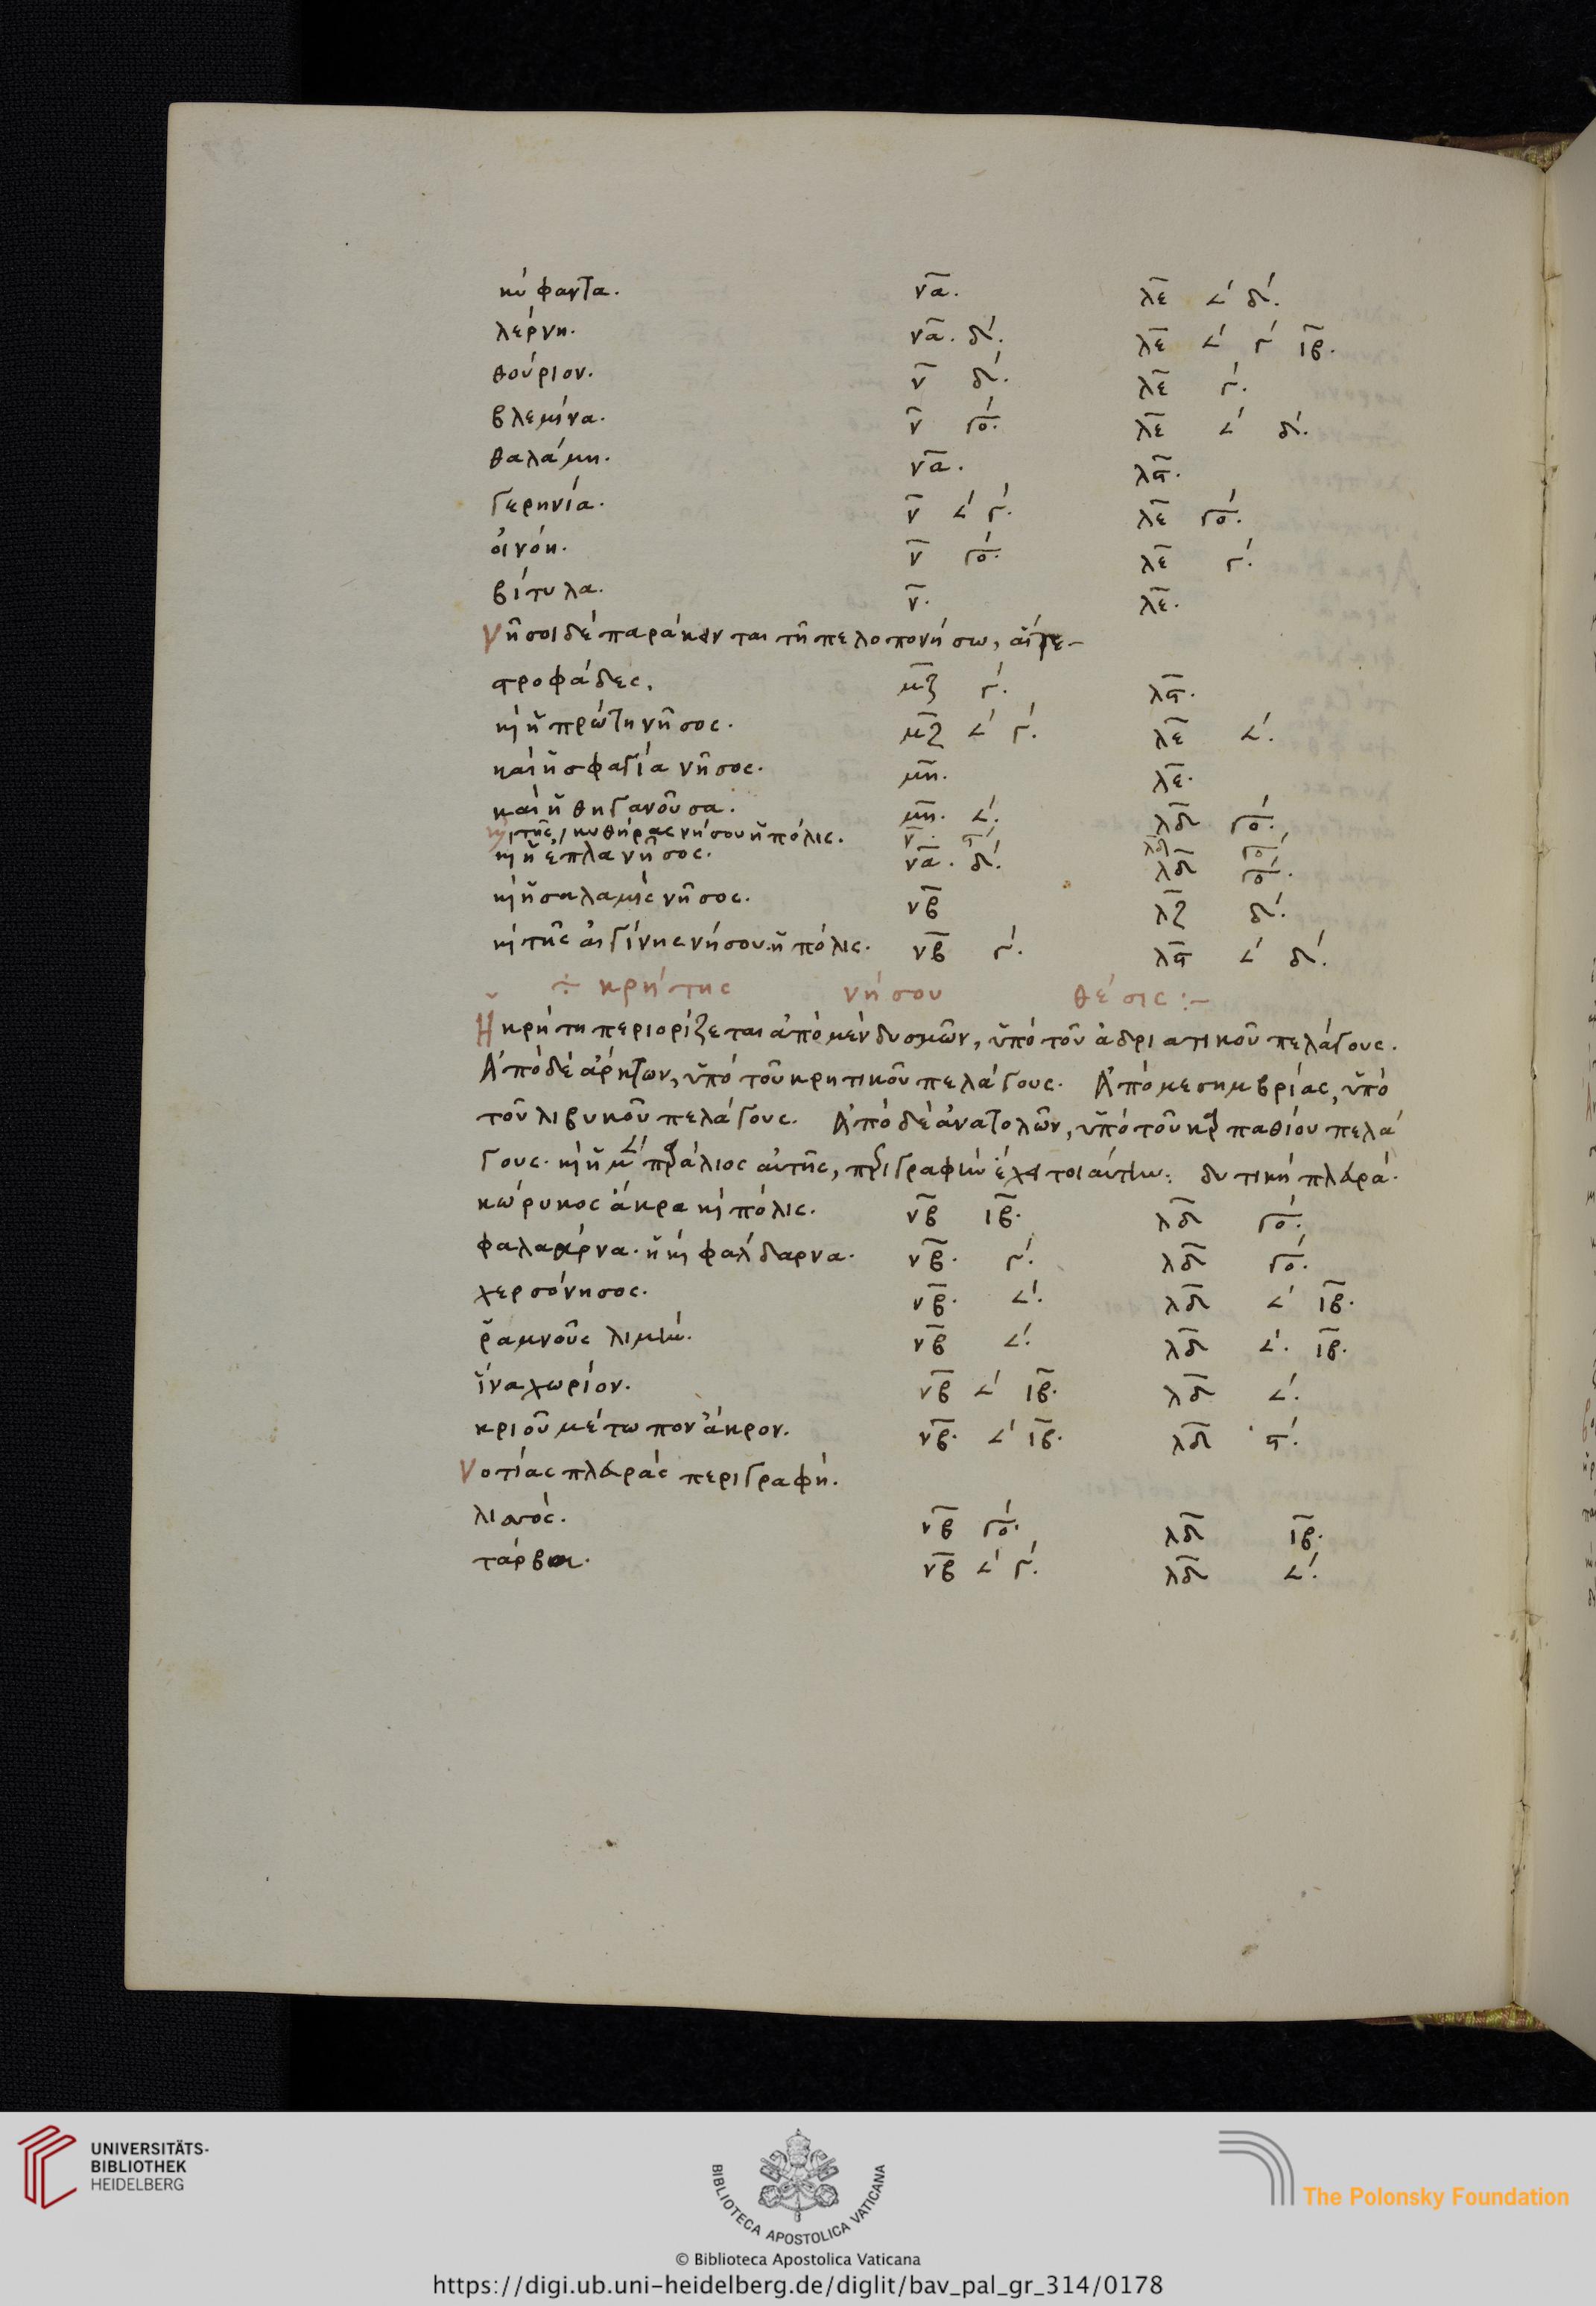 κύφαντα. να. λε ∠ʹ δʹ.
λέρνη. να. δʹ. λε ∠ʹ γʹ ιβ.
θούριον. ν δʹ. λε γʹ.
βλεμίνα. ν γοʹ. λε ∠ʹ δʹ.
θαλάμη. να. λϛ.
γερηνία. ν ∠ʹ γʹ. λε γοʹ.
οἰνόη. ν γοʹ. λε γʹ.
βίτυλα. ν. λε.
νῆσοι δέ παράκεινται τῆ πελοπονήσω, αἵτε-
στροφάδες. μζ γʹ. λϛ.
κὶ ἡ πρώτη νῆσος. μζ ∠ʹ γʹ. λε ∠ʹ.
καὶ ἡ σφαγία νῆσος. μη. λε.
καὶ ἡ θηγανοῦσα. μη. ∠ʹ. λδ γοʹ.
κὶ τῆς κυθήρας νήσου ἡ πόλις. ν. ϛʹ λδ γοʹ
κὶ ἡ ἐπλα νῆσος. να. δʹ. λδ γοʹ.
κὶ ἡ σαλαμὶς νῆσος. νβ λζ δʹ.
κὶ τῆς αἰγίνης νήσου. ἡ πόλις. νβ γʹ. λϛ ∠ʹ δʹ.
÷ κρήτης νήσου θέσις :-
Ἡ κρήτη περιορίζεται ἀπὸ μὲν δυσμῶν, ὑπὸ τοῦ ἀδριατικοῦ πελάγους.
Ἀπὸ δὲ ἄρκτων, ὑπὸ τοῦ κρητικοῦ πελάγους. Ἀπὸ μεσημβρίας, ὑπὸ
τοῦ λιβυκοῦ πελάγους. Ἀπὸ δὲ ἀνατολῶν, ὑπὸ τοῦ καρπαθίου πελά
γους. κὶ ἡ μὲν παράλιος αὐτῆς, περιγραφὴν ἔχει τοιαύτην: δυτικὴ πλευρά.
κώρυκος ἄκρα κὶ πόλις. νβ ιβ. λδ γοʹ.
φαλασάρνα. ἡ κὶ φαλάδαρνα. νβ. γʹ. λδ γοʹ.
χερσόνησος. νβ. ∠ʹ. λδ ∠ʹ ιβ.
ῥαμνοῦς λιμήν. νβ ∠ʹ. λδ ∠ʹ. ιβ.
ἰναχωρίον. νβ ∠ʹ ιβ. λδ ∠ʹ.
κριοῦ μέτωπον ἄκρον. νβ. ∠ʹ ιβ. λδ ϛʹ.
νοτίας πλευρὰς περιγραφή.
λισσός. νβ γοʹ. λδ ιβ.
νβ ∠ʹ γʹ. λδ ∠ʹ.
UNIVERSITÄTS-
BIBLIOTHEK
HEIDELBERG
BIBLIOTECA APOSTOLICA VATICANA
The Polonsky Foundation
© Biblioteca Apostolica Vaticana
https://digi.ub.uni-heidelberg.de/diglit/bav_pal_gr_314/0178